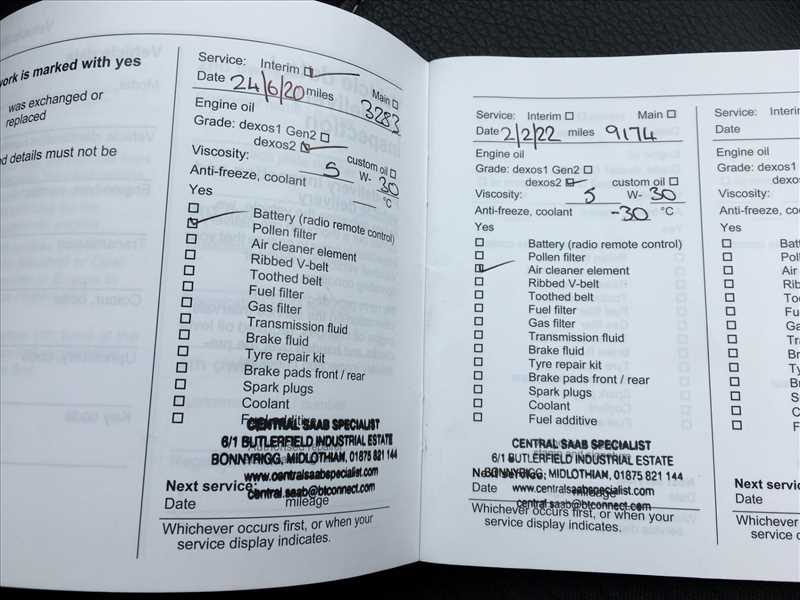 work is marked with yes
was exchanged or
replaced
d details must not be
Service: Interim
Main
Date 24/6/20 miles 3283
Engine oil
Grade: dexos1 Gen2
dexos2
custom oil
Viscosity: 5 W- 30
Anti-freeze, coolant °C
Yes
Battery (radio remote control)
Pollen filter
Air cleaner element
Ribbed V-belt
Toothed belt
Fuel filter
Gas filter
Transmission fluid
Brake fluid
Tyre repair kit
Brake pads front / rear
Spark plugs
Coolant
Fuel additive
CENTRAL SAAB SPECIALIST
6/1 BUTLERFIELD INDUSTRIAL ESTATE
BONNYRIGG, MIDLOTHIAN, 01875 821 144
www.centralsaabspecialist.com
central.saab@btconnect.com
Next service:
Date mileage
Whichever occurs first, or when your
service display indicates.
Service: Interim Main
Date 2/2/22 miles 9174
Engine oil
Grade: dexos1 Gen2
dexos2 custom oil
Viscosity: 5 W- 30
Anti-freeze, coolant -30 °C
Yes
Battery (radio remote control)
Pollen filter
Air cleaner element
Ribbed V-belt
Toothed belt
Fuel filter
Gas filter
Transmission fluid
Brake fluid
Tyre repair kit
Brake pads front / rear
Spark plugs
Coolant
Fuel additive
CENTRAL SAAB SPECIALIST
6/1 BUTLERFIELD INDUSTRIAL ESTATE
BONNYRIGG, MIDLOTHIAN, 01875 821 144
www.centralsaabspecialist.com
central.saab@btconnect.com
Next service:
Date mileage
Whichever occurs first, or when your
service display indicates.
Service: Inter
Date
Engine oil
Grade: dexos
Viscosity:
Anti-freeze, c
Yes
Batt
Poll
Air
Rib
To
Fu
Ga
Tra
Br
Ty
Br
S
C
F
Next servic
Date
Whichever
servic